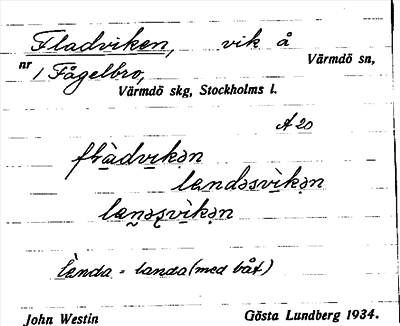 Fladviken, vik å
Värmdö sn,
nr 1 Fågelbro,
Värmdö skg, Stockholms l.
A 20
flàdvikən
landəsvìkən
lanəsvìkən
lànda = landa (med båt)
John Westin Gösta Lundberg 1934.